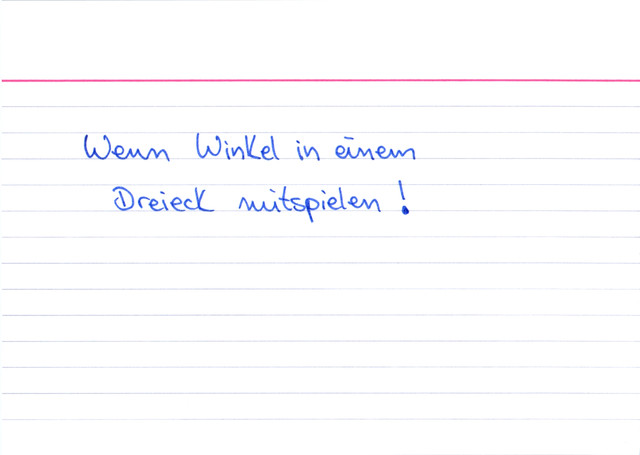 Wenn Winkel in einem
Dreieck mitspielen!